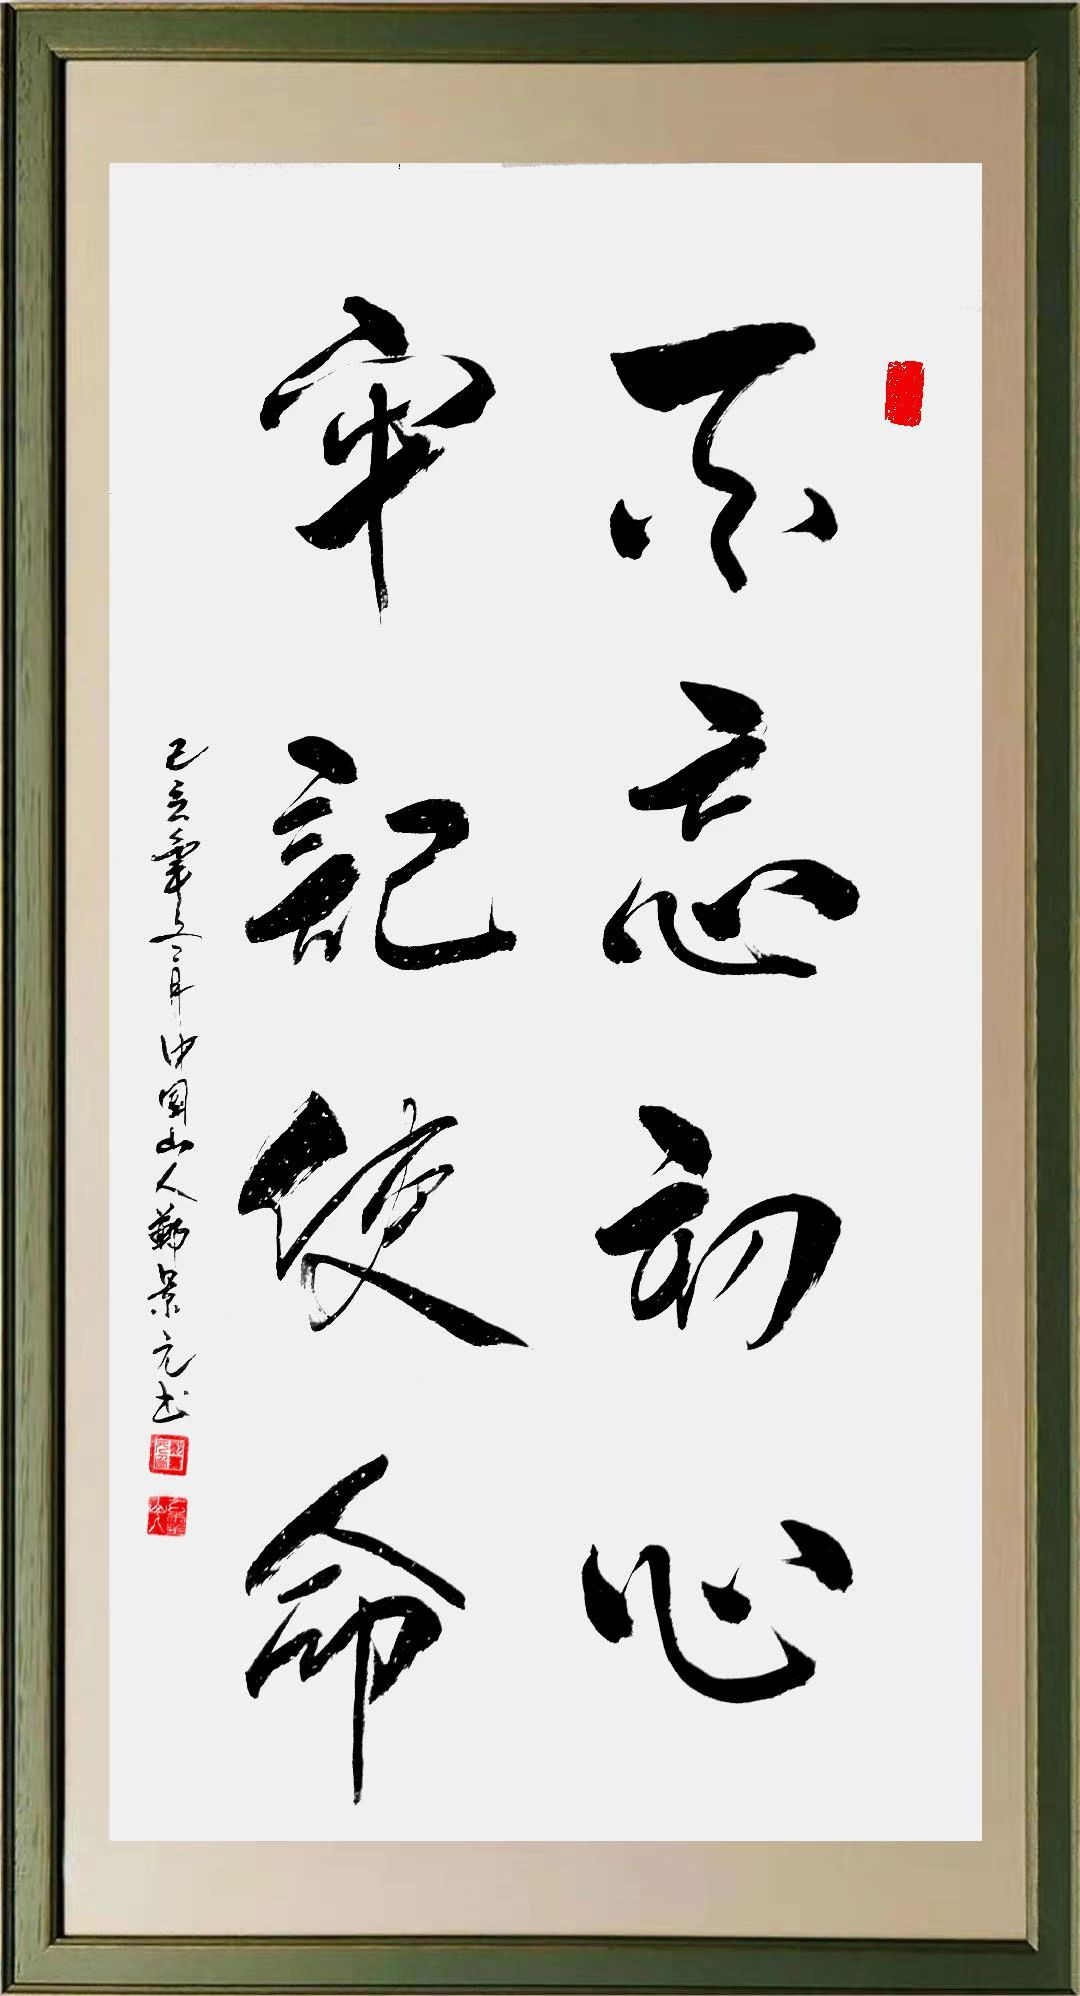 不忘初心
牢記使命
己亥年二月中国山人景元书